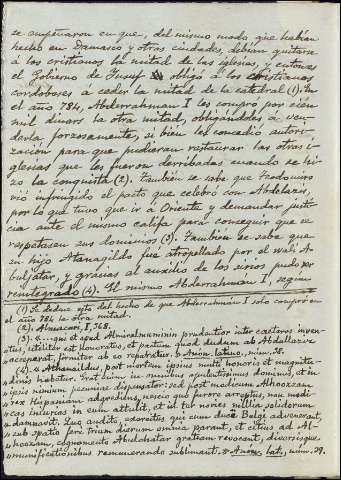 se empeñaron en que, del mismo modo que habian
hecho en Damasco y otras ciudades, debian quitarse
á los cristianos la mitad de las iglesias, y entonces
el Gobierno de Jusuf obligó á los cristianos
cordobeses á ceder la mitad de la catedral (1). En
el año 784, Abderrahman I les compró por cien
mil dinars la otra mitad, obligándoles á ven-
derla forzosamente, si bien les concedio autori-
zación para que pudieran restaurar las otras i-
glesias que les fueron derribadas cuando se hi-
zo la conquista (2). También se sabe que Teodomiro
vió infringido el pacto que celebró con Abdelaziz
por lo que tuvo que ir á Oriente y demandar justi-
cia ante el mismo califa para conseguir que se
respetasen sus dominios (3). También se sabe que
su hijo Atanagildo fue atropellado por el walí A-
buljatar, y gracias al auxilio de los sirios pudo ser
reintegrado (4). El mismo Abderrahman I, según
(1). Se deduce esto del hecho de que Abderrahman I solo compró en
el año 784 la otra mitad.
(2). Almacari, I, 368.
(3). «... que et apud Almiralmuminin prudentior inter caeteros inven-
tus, utiliter est honoratus, et pactum quod dudum ab Abdallaziz
acceperat, firmiter ab eo reparatur.» Anón. latino, núm. 38.
(4). «Athanaildus, post mortem ipsius multi honoris et magnitu-
dinis habetur. Erat enim in omnibus opulentissimus dominus, et in
ipsis nimium pecuniae dispensator: sed post modicum Alhoozzam
rex Hispaniam adgrediens, nescio quo furore arreptus, non modi-
cas injurias in eum attulit, et in ter novies millia solidorum
damnavit. Quo audito, exercitus qui cum duce Belgi advenerant,
sub spatio fere trium dierum omnia parant, et citius ad Al-
hoozzam, cognomento Abulchatar gratiam revocant, diversisque
munificationibus remunerando sublimant.» Anón. lat., núm. 39.